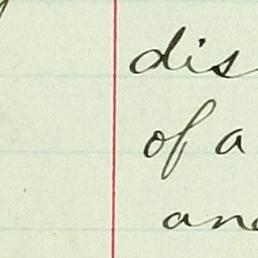 dis
of a
an